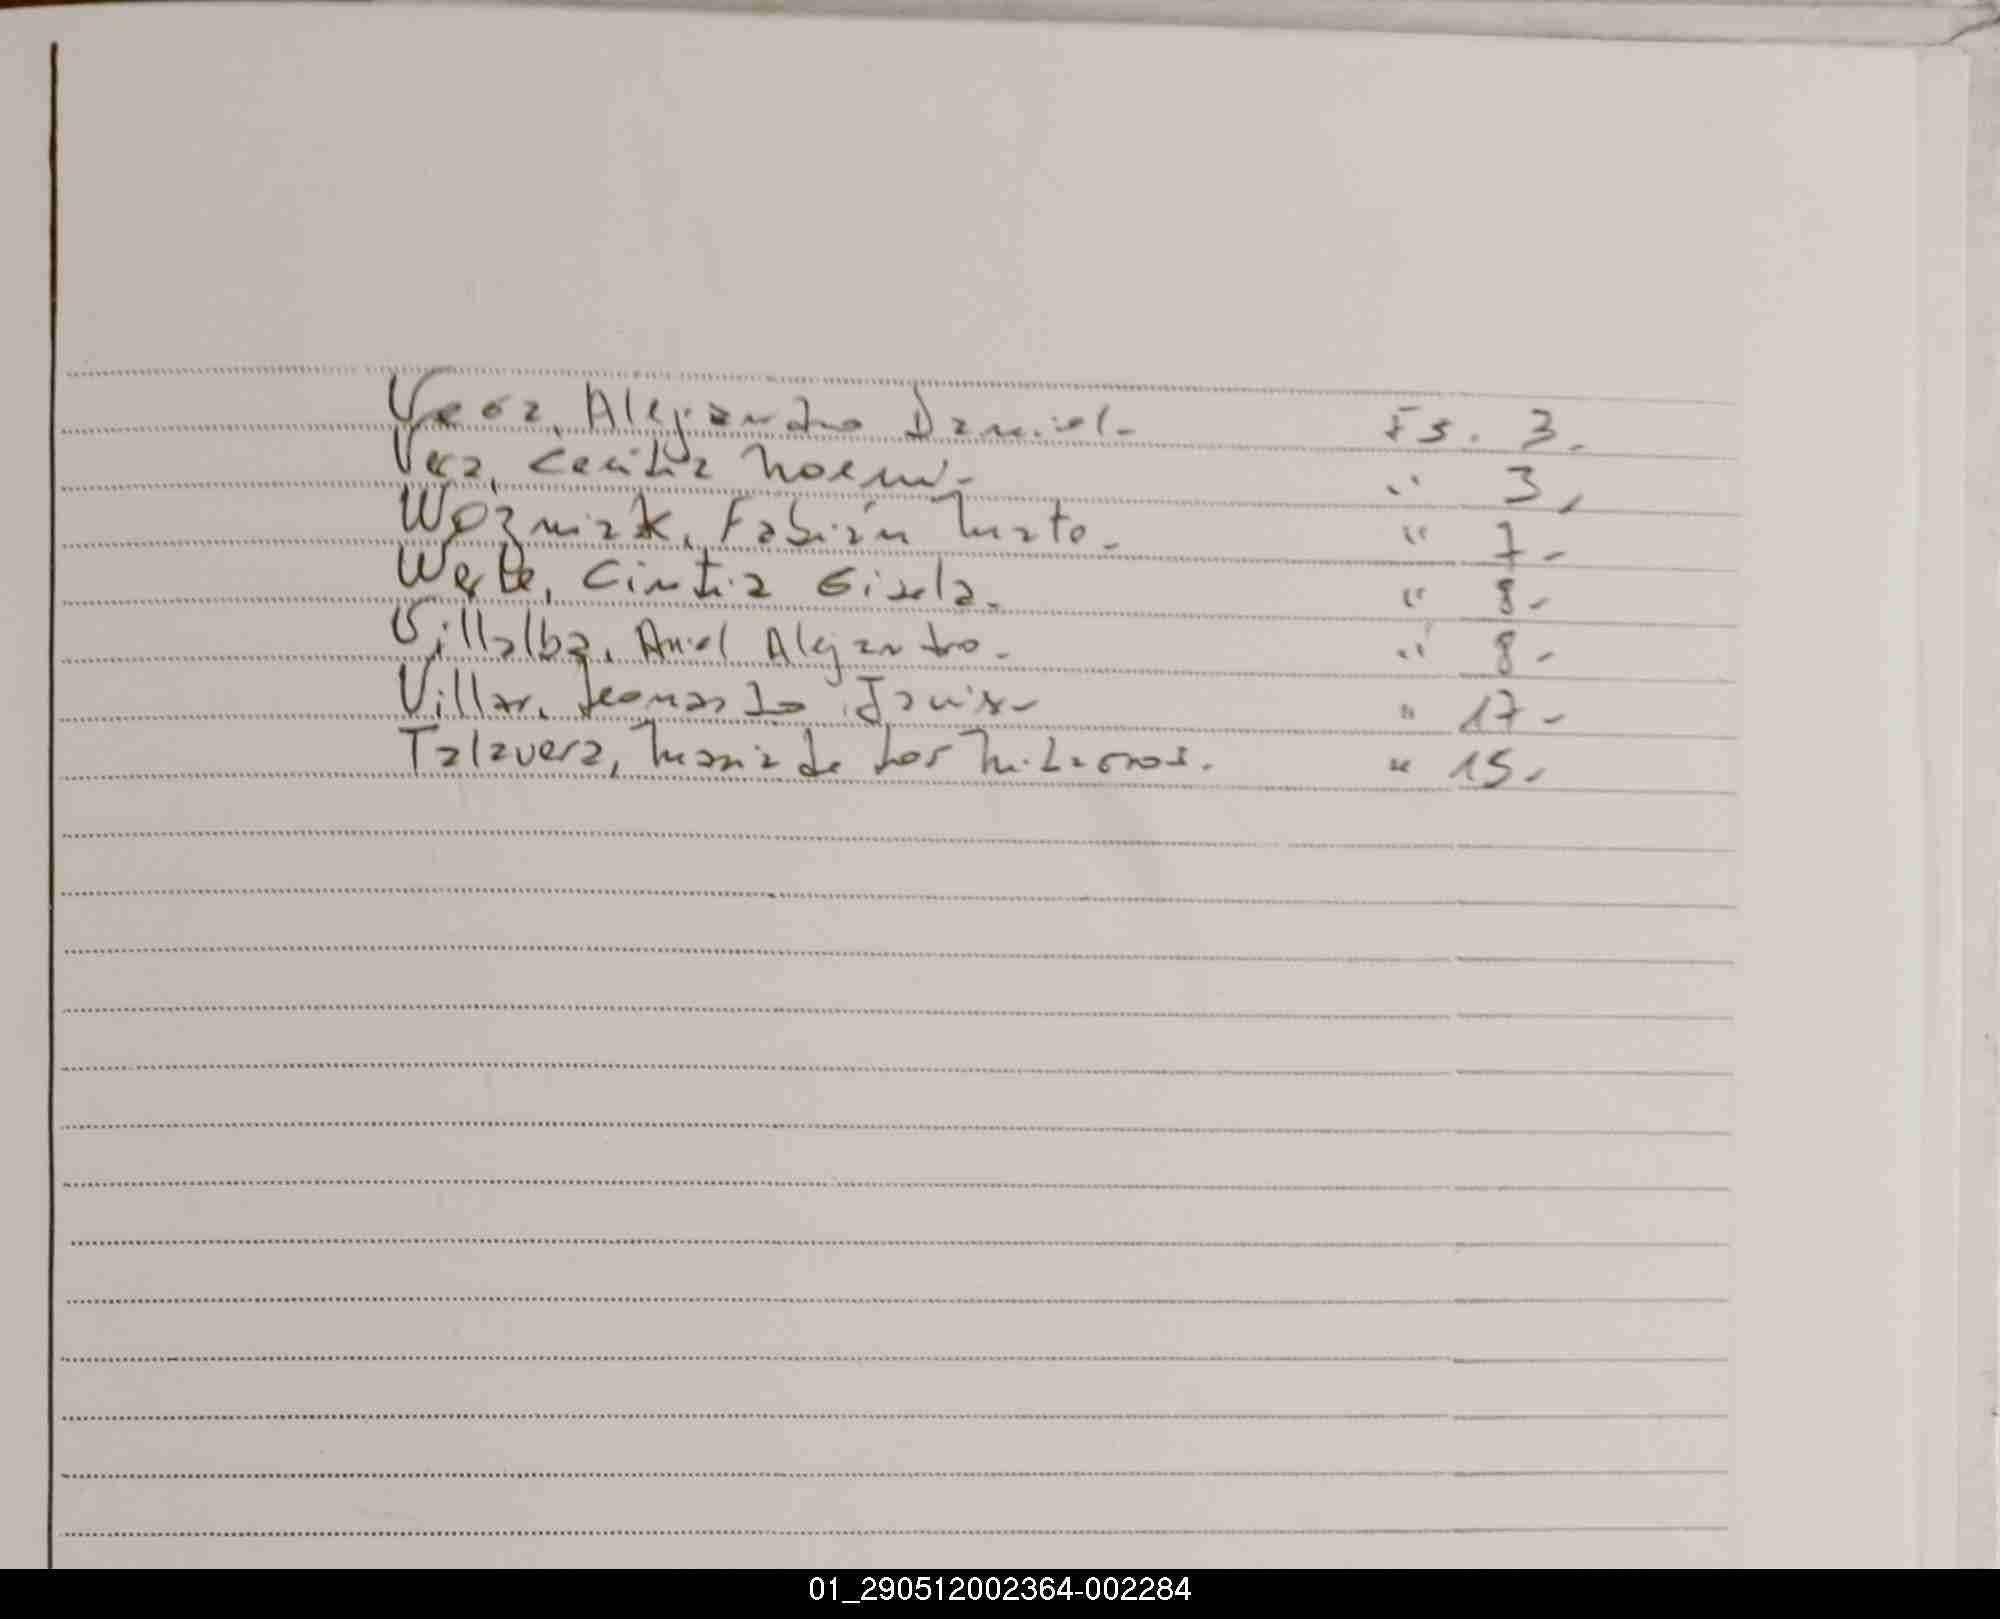 Vera, Alejandro Daniel. Fs. 3.
Vera, Noemi. " 3.
Wozniak, Fabián " 7.
Cintia Gisela. " 8.
Villalba, Ariel Alejandro. " 8.
Villar, Leonardo Javier " 17.
Talavera, Maria de Los Milagros. " 15.
01_290512002364-002284